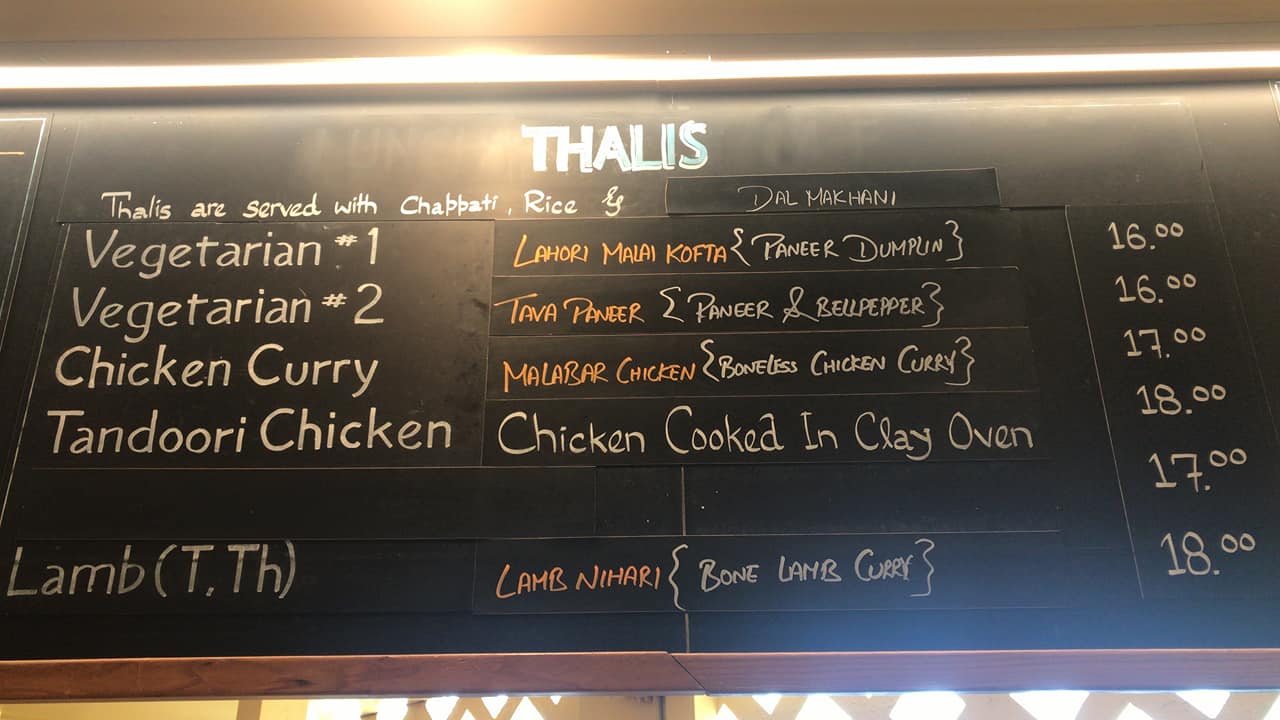 THALIS
Thalis are served with Chappati, Rice & DAL MAKHANI
Vegetarian #1 LAHORI MALAI KOFTA {PANEER DUMPLIN} 16.00
Vegetarian #2 TAVA PANEER {PANEER & BELLPEPPER} 16.00
Chicken Curry MALABAR CHICKEN {BONELESS CHICKEN CURRY} 17.00
Tandoori Chicken Chicken Cooked In Clay Oven 18.00
17.00
Lamb (T, Th) LAMB NIHARI {BONE LAMB CURRY} 18.00